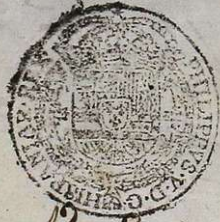 PHILIPPUS·V·D·G·HISPANIAR·REX
12